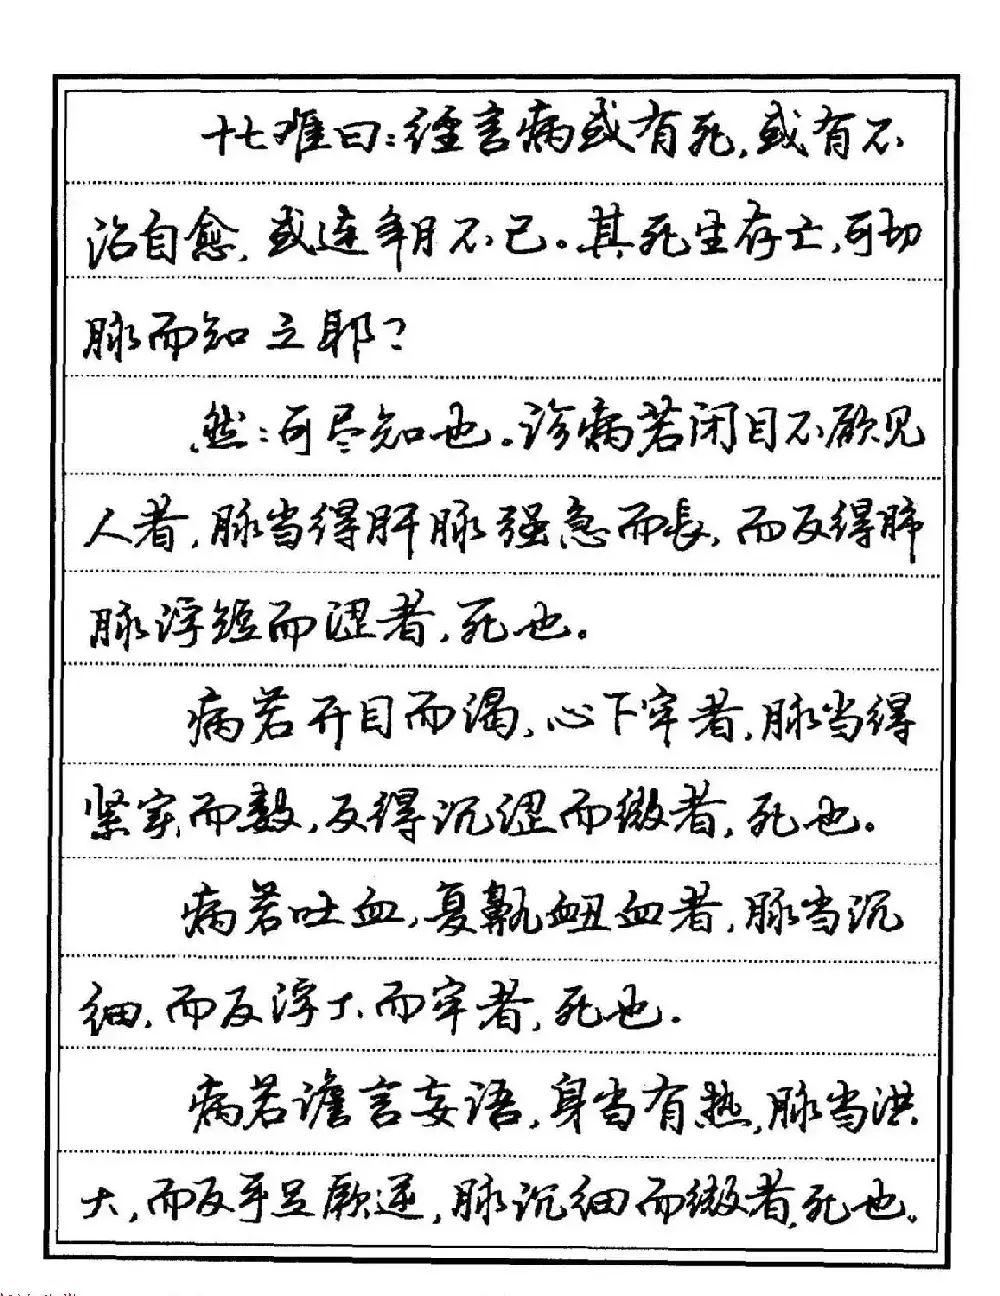 十七难曰:经言病或有死,或有不
治自愈,或连年月不已。其死生存亡,可切
脉而知之耶?
然:可尽知也。诊病若闭目不欲见
人者,脉当得肝脉强急而長,而反得肺
脉浮短而涩者,死也。
病若开目而渴,心下牢者,脉当得
紧实而数,反得沉涩而微者,死也。
病若吐血,复鼽衄血者,脉当沉
细,而反浮大而牢者,死也.
病若谵言妄语,身当有热,脉当洪
大,而反手足厥逆,脉沉细而微者,死也。